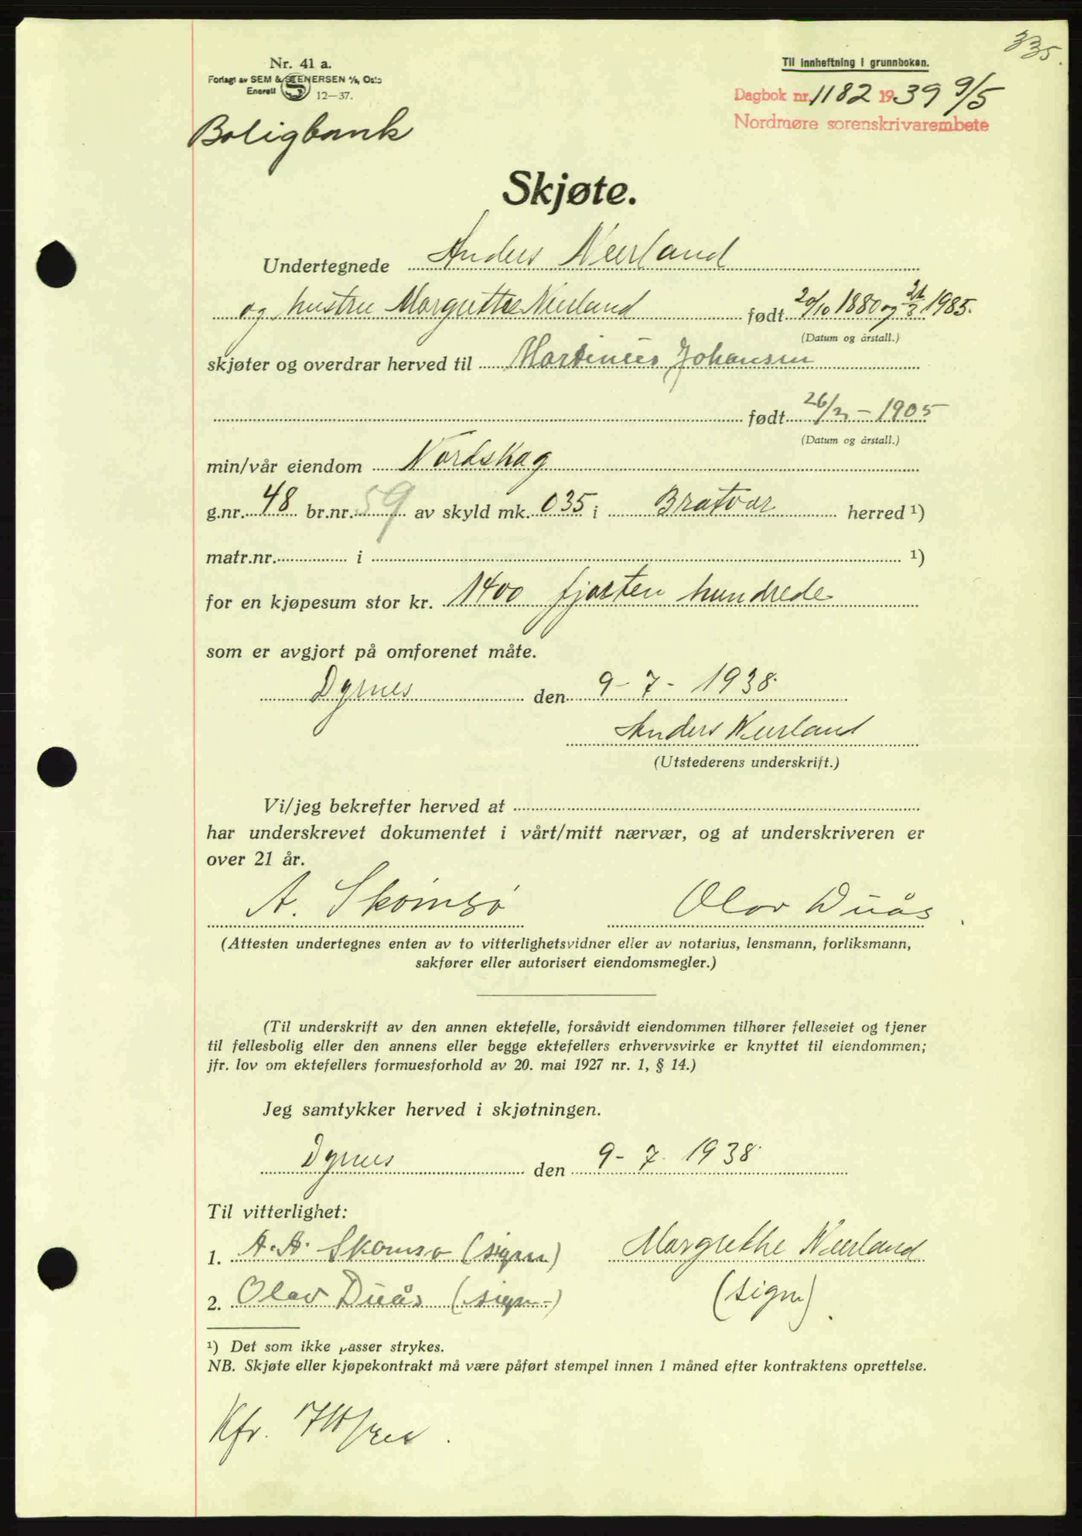 335.
Nr. 41 a.
Forlagt av SEM & STENERSEN A/S, Oslo
Enerett 12—37.
Til innheftning i grunnboken.
Dagbok nr. 1182 1939 9/5
Nordmøre sorenskrivarembete
Boligbank
Skjøte.
Undertegnede Anders Neerland
og hustru Margrethe Neerland født 20/10 1880 og 21/3 1985.
(Datum og årstall.)
skjøter og overdrar herved til Martinius Johansen
født 26/2 - 1905
(Datum og årstall.)
min/vår eiendom Nordskag
g.nr. 48 br.nr. 59 av skyld mk. 035 i Bratvær herred ¹)
matr.nr. i ¹)
for en kjøpesum stor kr. 1400 fjorten hundrede
som er avgjort på omforenet måte.
Dyrnes den 9 - 7 - 1938.
Anders Neerland
(Utstederens underskrift.)
Vi/jeg bekrefter herved at
har underskrevet dokumentet i vårt/mitt nærvær, og at underskriveren er
over 21 år.
A. Skomsø Olav Duås.
(Attesten undertegnes enten av to vitterlighetsvidner eller av notarius, lensmann, forliksmann,
sakfører eller autorisert eiendomsmegler.)
(Til underskrift av den annen ektefelle, forsåvidt eiendommen tilhører felleseiet og tjener
til fellesbolig eller den annens eller begge ektefellers erhvervsvirke er knyttet til eiendommen;
jfr. lov om ektefellers formuesforhold av 20. mai 1927 nr. 1, § 14.)
Jeg samtykker herved i skjøtningen.
Dyrnes den 9 - 7. 1938.
Til vitterlighet:
1. A. A. Skomsø (sign) Margrethe Neerland
2. Olav Duås (sign) (sign).
¹) Det som ikke passer strykes.
NB. Skjøte eller kjøpekontrakt må være påført stempel innen 1 måned efter kontraktens oprettelse.
Kfr.